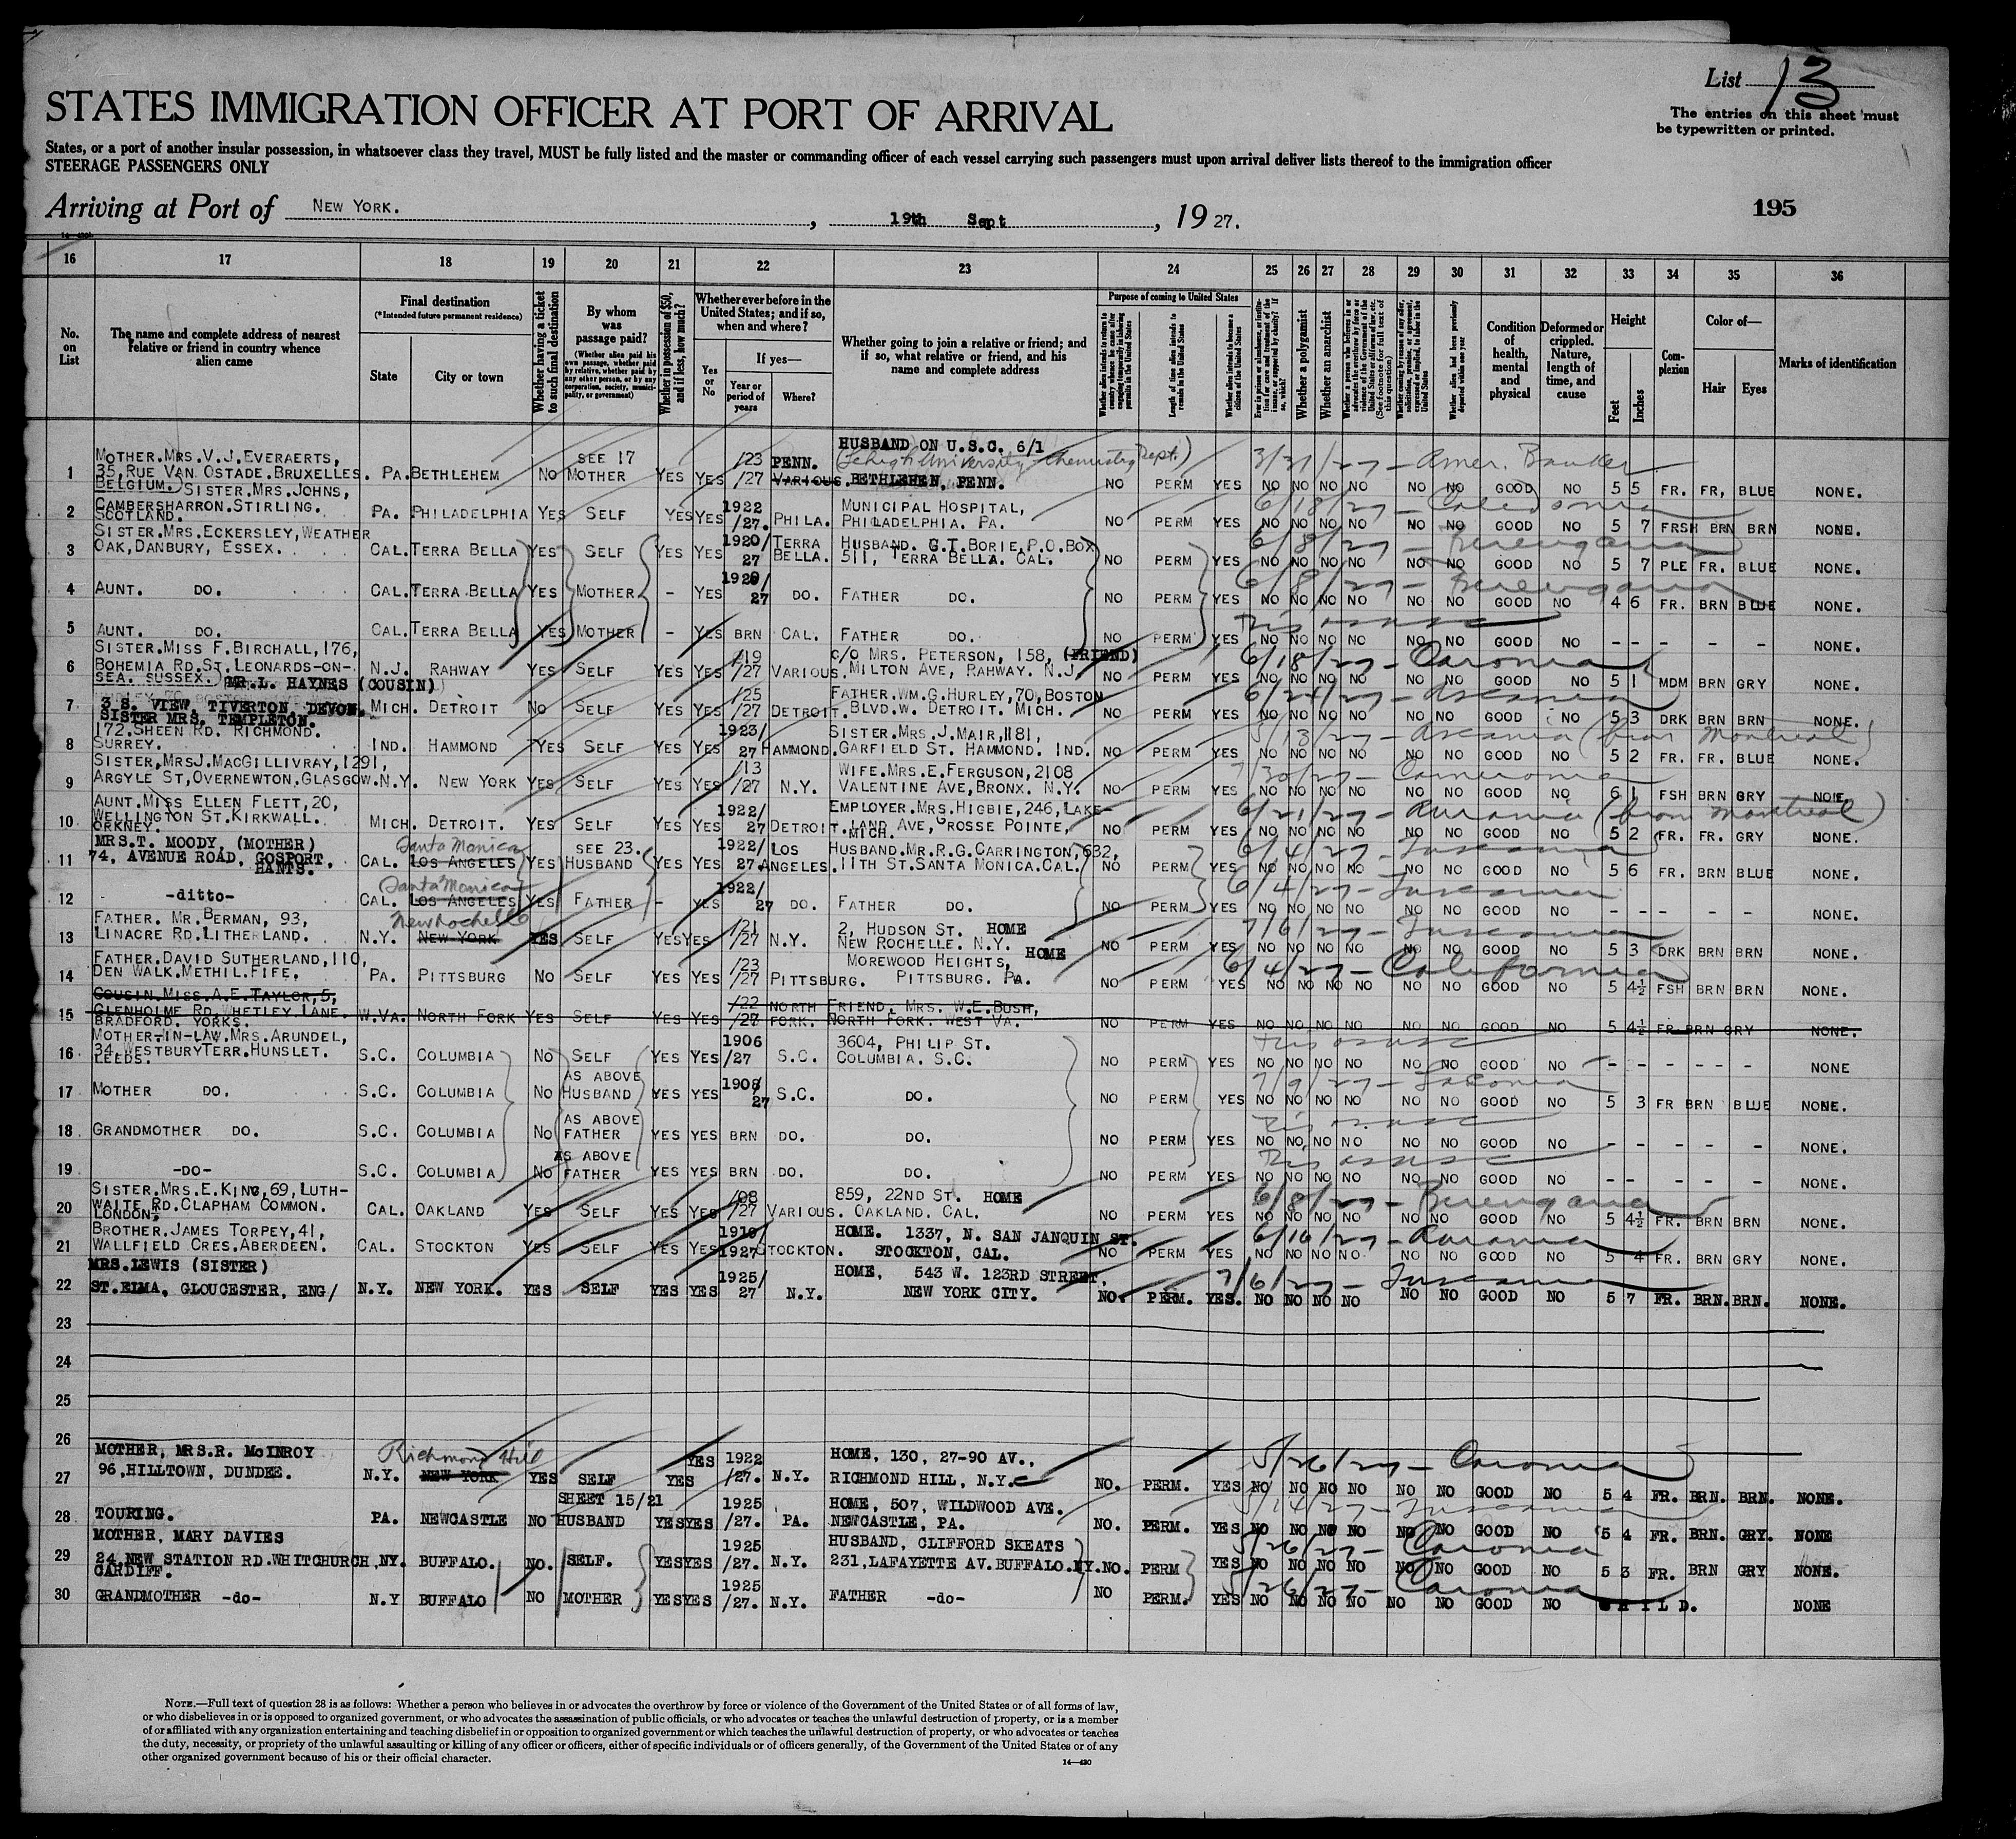 List 13
The entries on this sheet must
be typewritten or printed.
STATES IMMIGRATION OFFICER AT PORT OF ARRIVAL
States, or a port of another insular possession, in whatsoever class they travel, MUST be fully listed and the master or commanding officer of each vessel carrying such passengers must upon arrival deliver lists thereof to the immigration officer
STEERAGE PASSENGERS ONLY
Arriving at Port of NEW YORK. , 19th Sept , 19 27.
195
16 17 18 19 20 21 22 23 24 25 26 27 28 29 30 31 32 33 34 35 36
No. on List
The name and complete address of nearest relative or friend in country whence alien came
Final destination
(*Intended future permanent residence)
State
City or town
Whether having a ticket to such final destination
By whom was passage paid?
(Whether alien paid his own passage, whether paid by relative, whether paid by any other person, or by any corporation, society, municipality, or government)
Whether in possession of $50, and if less, how much?
Whether ever before in the United States; and if so, when and where?
Yes or No
If yes—
Year or period of years
Where?
Whether going to join a relative or friend; and if so, what relative or friend, and his name and complete address
Purpose of coming to United States
Whether alien intends to return to country whence he came after engaging temporarily in laboring pursuits in the United States
Length of time alien intends to remain in the United States
Whether alien intends to become a citizen of the United States
Ever in prison or almshouse, or institution for care and treatment of the insane, or supported by charity? If so, which?
Whether a polygamist
Whether an anarchist
Whether a person who believes in or advocates the overthrow by force or violence of the Government of the United States or all forms of law, etc. (See footnote for full text of this question)
Whether coming by reason of any offer, solicitation, promise, or agreement, expressed or implied, to labor in the United States
Whether alien had been previously deported within one year
Condition of health, mental and physical
Deformed or crippled. Nature, length of time, and cause
Height
Feet
Inches
Complexion
Color of—
Hair
Eyes
Marks of identification
HUSBAND ON U.S.C. 6/1
MOTHER.MRS.V.J.EVERAERTS, SEE 17 /23 PENN. (Lehigh University - Chemistry Dept.) 3/31/27 - Amer. Banker
1 35,RUE VAN OSTADE.BRUXELLES. PA. BETHLEHEM NO MOTHER YES YES /27 VARIOUS. BETHLEHEN, PENN. NO PERM YES NO NO NO NO NO NO GOOD NO 5 5 FR. FR, BLUE NONE.
BELGIUM.) SISTER.MRS.JOHNS,
2 CAMBERSHARRON.STIRLING. PA. PHILADELPHIA YES SELF YES YES 1922 /27. PHILA. MUNICIPAL HOSPITAL, 6/18/27 - Caledonia
SCOTLAND. PHILADELPHIA. PA. NO PERM YES NO NO NO NO NO NO GOOD NO 5 7 FRSH BRN BRN NONE.
SISTER.MRS.ECKERSLEY,WEATHER 1920/ TERRA HUSBAND. G.T.BORIE,P.O.BOX 6/8/27 - Berengaria
3 OAK,DANBURY, ESSEX. CAL. TERRA BELLA YES SELF YES YES 27 BELLA. 511, TERRA BELLA. CAL. NO PERM YES NO NO NO NO NO NO GOOD NO 5 7 PLE FR. BLUE NONE.
1920/ 6/8/27 - Berengaria
4 AUNT. DO. CAL. TERRA BELLA YES MOTHER - YES 27 DO. FATHER DO. NO PERM YES NO NO NO NO NO NO GOOD NO 4 6 FR. BRN BLUE NONE.
5 AUNT. DO. CAL. TERRA BELLA YES MOTHER - YES BRN CAL. FATHER DO. NO PERM YES NO NO NO NO NO NO GOOD NO - - - - - NONE.
SISTER.MISS F.BIRCHALL,176, /19 C/O MRS. PETERSON, 158, (FRIEND) 6/18/27 - Caronia
6 BOHEMIA RD.ST.LEONARDS-ON- N.J. RAHWAY YES SELF YES YES /27 VARIOUS. MILTON AVE, RAHWAY. N.J. NO PERM YES NO NO NO NO NO NO GOOD NO 5 1 MDM BRN GRY NONE.
SEA. SUSSEX.) MR.L. HAYNES (COUSIN) /25 FATHER.WM.G.HURLEY,70,BOSTON 6/24/27 - Ascania
7 3 S. VIEW, TIVERTON DEVON. MICH. DETROIT NO SELF YES YES /27 DETROIT. BLVD.W. DETROIT. MICH. NO PERM YES NO NO NO NO NO NO GOOD NO 5 3 DRK BRN BRN NONE.
SISTER MRS. TEMPLETON.
172.SHEEN RD. RICHMOND. 1923/ SISTER.MRS.J.MAIR,1181, 5/13/27 - Ascania (from Montreal)
8 SURREY. IND. HAMMOND YES SELF YES YES 27 HAMMOND. GARFIELD ST. HAMMOND. IND. NO PERM YES NO NO NO NO NO NO GOOD NO 5 2 FR. FR. BLUE NONE.
SISTER,MRSJ.MACGILLIVRAY,1291, /13 WIFE.MRS.E.FERGUSON,2108 7/30/27 - Cameronia
9 ARGYLE ST,OVERNEWTON,GLASGOW. N.Y. NEW YORK YES SELF YES YES /27 N.Y. VALENTINE AVE,BRONX. N.Y. NO PERM YES NO NO NO NO NO NO GOOD NO 6 1 FSH BRN GRY NONE.
AUNT.MISS ELLEN FLETT,20, 1922/ EMPLOYER.MRS.HIGBIE,246,LAKE- 6/21/27 - Aurania (from Montreal)
10 WELLINGTON ST.KIRKWALL. MICH. DETROIT. YES SELF YES YES 27 DETROIT. LAND AVE,GROSSE POINTE, MICH. NO PERM YES NO NO NO NO NO NO GOOD NO 5 2 FR. FR. GRY NONE.
ORKNEY.
MRS.T. MOODY, (MOTHER) Santa Monica SEE 23. 1922/ LOS HUSBAND.MR.R.G.CARRINGTON,632, 6/4/27 - Tuscania
11 74, AVENUE ROAD, GOSPORT. CAL. LOS ANGELES YES HUSBAND YES YES 27 ANGELES. 11TH ST.SANTA MONICA.CAL. NO PERM YES NO NO NO NO NO NO GOOD NO 5 6 FR. BRN BLUE NONE.
HANTS.
Santa Monica 1922/ 6/4/27 - Tuscania
12 -ditto- CAL. LOS ANGELES YES FATHER - YES 27 DO. FATHER DO. NO PERM YES NO NO NO NO NO NO GOOD NO - - - - - NONE.
FATHER. MR.BERMAN, 93, New Rochelle /21 2, HUDSON ST. HOME 7/6/27 - Tuscania
13 LINACRE RD.LITHERLAND. N.Y. NEW YORK YES SELF YES YES /27 N.Y. NEW ROCHELLE. N.Y. NO PERM YES NO NO NO NO NO NO GOOD NO 5 3 DRK BRN BRN NONE.
FATHER.DAVID SUTHERLAND,110, /23 MOREWOOD HEIGHTS, HOME 6/4/27 - California
14 DEN WALK.METHIL.FIFE. PA. PITTSBURG NO SELF YES YES /27 PITTSBURG. PITTSBURG. PA. NO PERM YES NO NO NO NO NO NO GOOD NO 5 4½ FSH BRN BRN NONE.
COUSIN.MISS.A.E.TAYLOR,5, /22 NORTH FRIEND. MRS. W.E.BUSH,
15 GLENHOLME RD.WHETLEY LANE. W.VA. NORTH FORK YES SELF YES YES /27 FORK. NORTH FORK. WEST VA. NO PERM YES NO NO NO NO NO NO GOOD NO 5 4½ FR BRN GRY NONE.
BRADFORD. YORKS.
MOTHER-IN-LAW.MRS.ARUNDEL, 1906 3604, PHILIP ST.
16 34,WESTBURY TERR.HUNSLET. S.C. COLUMBIA NO SELF YES YES /27 S.C. COLUMBIA. S.C. NO PERM YES NO NO NO NO NO NO GOOD NO - - - - - NONE
LEEDS.
AS ABOVE 1908/ 7/9/27 - Laconia
17 MOTHER DO. S.C. COLUMBIA NO HUSBAND YES YES 27 S.C. DO. NO PERM YES NO NO NO NO NO NO GOOD NO 5 3 FR BRN BLUE NONE.
AS ABOVE
18 GRANDMOTHER DO. S.C. COLUMBIA NO FATHER YES YES BRN DO. DO. NO PERM YES NO NO NO NO NO NO GOOD NO - - - - - NONE.
AS ABOVE
19 -DO- S.C. COLUMBIA NO FATHER YES YES BRN DO. DO. NO PERM YES NO NO NO NO NO NO GOOD NO - - - - - NONE.
SISTER.MRS.E.KING,69,LUTH- /08 859, 22ND ST. HOME 6/8/27 - Berengaria
20 WAITE RD.CLAPHAM COMMON. CAL. OAKLAND YES SELF YES YES /27 VARIOUS. OAKLAND. CAL. NO PERM YES NO NO NO NO NO NO GOOD NO 5 4½ FR. BRN BRN NONE.
LONDON,
BROTHER.JAMES TORPEY,41, 1910/ HOME. 1337, N. SAN JANQUIN ST. 6/10/27 - Aurania
21 WALLFIELD CRES.ABERDEEN. CAL. STOCKTON YES SELF YES YES 1927 STOCKTON. STOCKTON, CAL. NO PERM YES NO NO NO NO NO NO GOOD NO 5 4 FR. BRN GRY NONE.
MRS.LEWIS (SISTER) 1925/ HOME, 543 W. 123RD STREET, 7/6/27 - Tuscania
22 ST.ELMA, GLOUCESTER, ENG/ N.Y. NEW YORK. YES SELF YES YES 27 N.Y. NEW YORK CITY. NO. PERM. YES. NO NO NO NO NO NO GOOD NO 5 7 FR. BRN. BRN. NONE.
23
24
25
26
MOTHER, MRS.R. McINROY Richmond Hill YES 1922 HOME, 130, 27-90 AV., 5/26/27 - Caronia
27 96,HILLTOWN, DUNDEE. N.Y. NEW YORK YES SELF YES /27. N.Y. RICHMOND HILL, N.Y. NO. PERM. YES NO NO NO NO NO NO GOOD NO 5 4 FR. BRN. BRN. NONE.
SHEET 15/21 1925 HOME, 507, WILDWOOD AVE. 5/14/27 - Tuscania
28 TOURING. PA. NEWCASTLE NO HUSBAND YES YES /27. PA. NEWCASTLE, PA. NO. PERM. YES NO NO NO NO NO NO GOOD NO 5 4 FR. BRN. GRY. NONE
MOTHER, MARY DAVIES 1925 HUSBAND, CLIFFORD SKEATS 5/26/27 - Caronia
29 24,NEW STATION RD.WHITCHURCH, NY. BUFFALO. NO. SELF. YES YES /27. N.Y. 231,LAFAYETTE AV.BUFFALO.NY. NO. PERM YES NO NO NO NO NO NO GOOD NO 5 3 FR. BRN GRY NONE.
CARDIFF.
1925 5/26/27 - Caronia
30 GRANDMOTHER -do- N.Y BUFFALO NO MOTHER YES YES /27. N.Y. FATHER -do- NO PERM. YES NO NO NO NO NO NO GOOD NO CHILD. NONE
NOTE.—Full text of question 28 is as follows: Whether a person who believes in or advocates the overthrow by force or violence of the Government of the United States or of all forms of law,
or who disbelieves in or is opposed to organized government, or who advocates the assassination of public officials, or who advocates or teaches the unlawful destruction of property, or is a member
of or affiliated with any organization entertaining and teaching disbelief in or opposition to organized government or which teaches the unlawful destruction of property, or who advocates or teaches
the duty, necessity, or propriety of the unlawful assaulting or killing of any officer or officers, either of specific individuals or of officers generally, of the Government of the United States or of any
other organized government because of his or their official character.
14—430